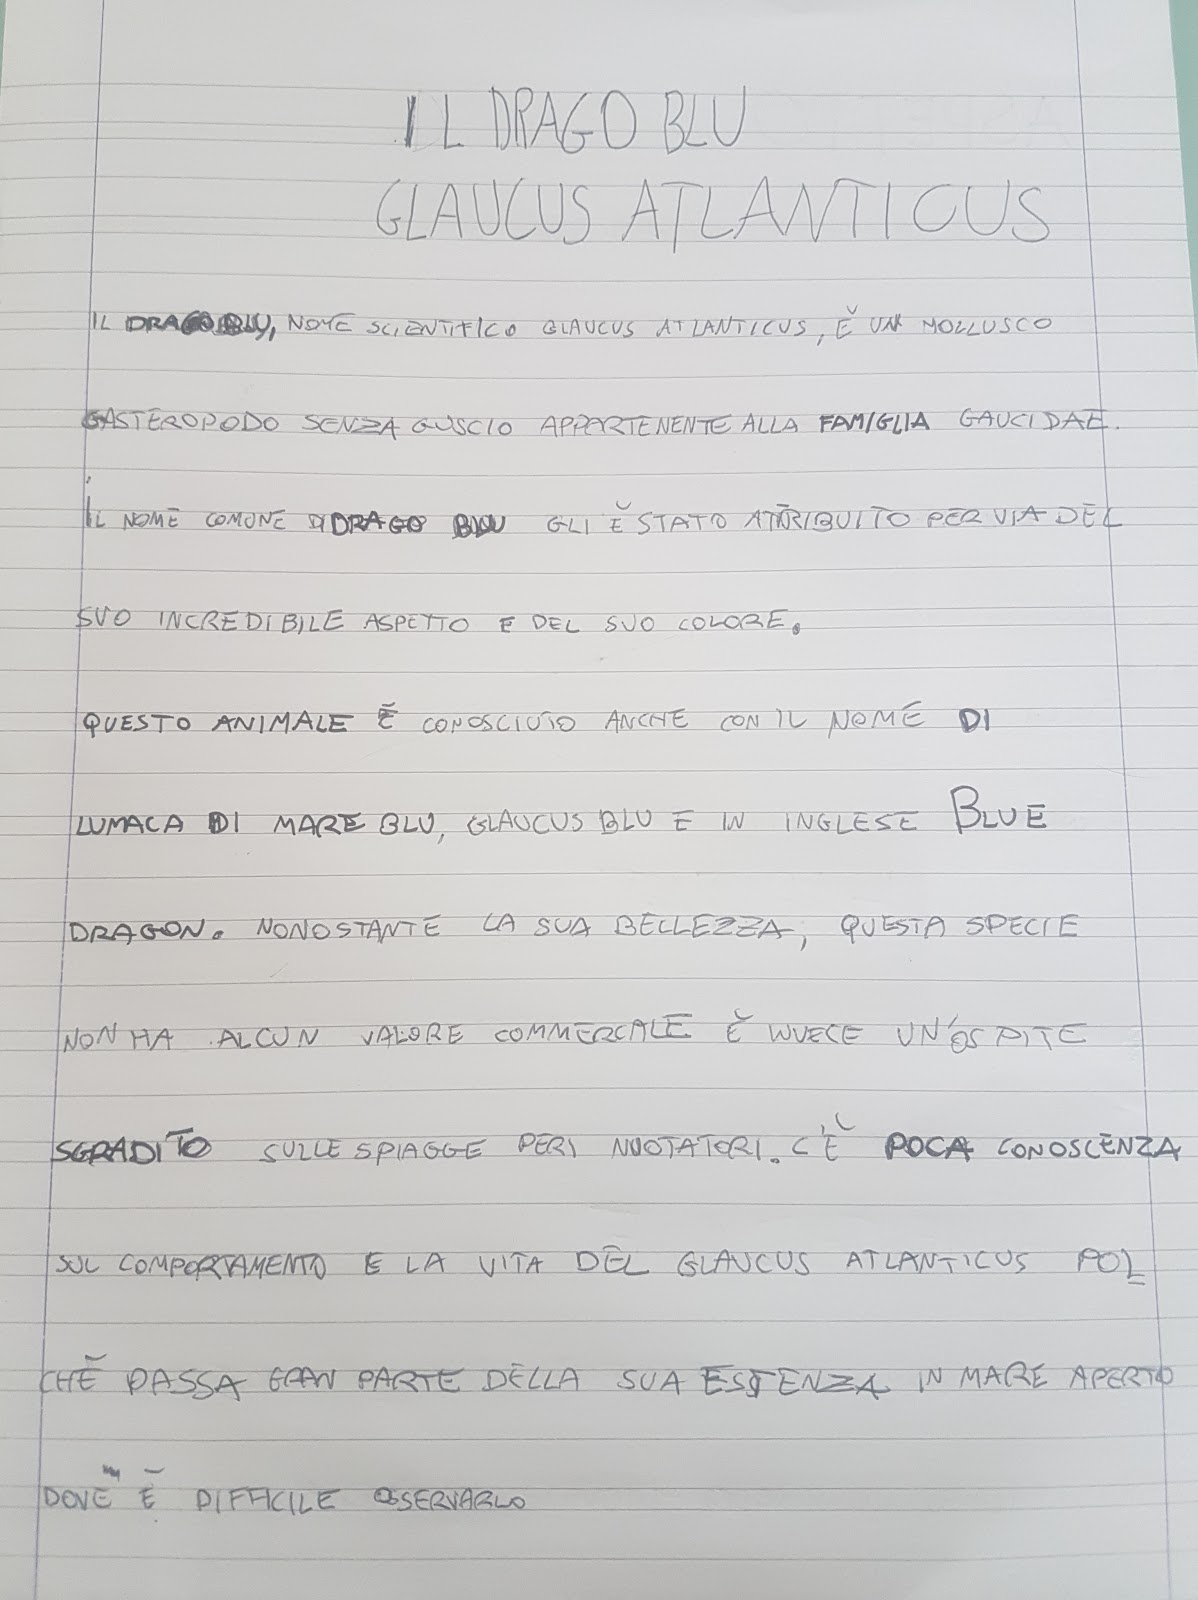 IL DRAGO BLU
GLAUCUS ATLANTICUS
IL DRAGO BLU, NOME SCIENTIFICO GLAUCUS ATLANTICUS, È UN MOLLUSCO
GASTEROPODO SENZA GUSCIO APPARTENENTE ALLA FAMIGLIA GAUCIDAE.
IL NOME COMUNE DI DRAGO BLU GLI È STATO ATTRIBUITO PER VIA DEL
SUO INCREDIBILE ASPETTO E DEL SUO COLORE.
QUESTO ANIMALE È CONOSCIUTO ANCHE CON IL NOME DI
LUMACA DI MARE BLU, GLAUCUS BLU E IN INGLESE BLUE
DRAGON. NONOSTANTE LA SUA BELLEZZA, QUESTA SPECIE
NON HA ALCUN VALORE COMMERCALE È INVECE UN'OSPITE
SGRADITO SULLE SPIAGGE PER I NUOTATORI. C'È POCA CONOSCENZA
SUL COMPORTAMENTO E LA VITA DEL GLAUCUS ATLANTICUS POI
CHÈ PASSA GRAN PARTE DELLA SUA ESISTENZA IN MARE APERTO
DOVE È DIFFICILE OSSERVARLO